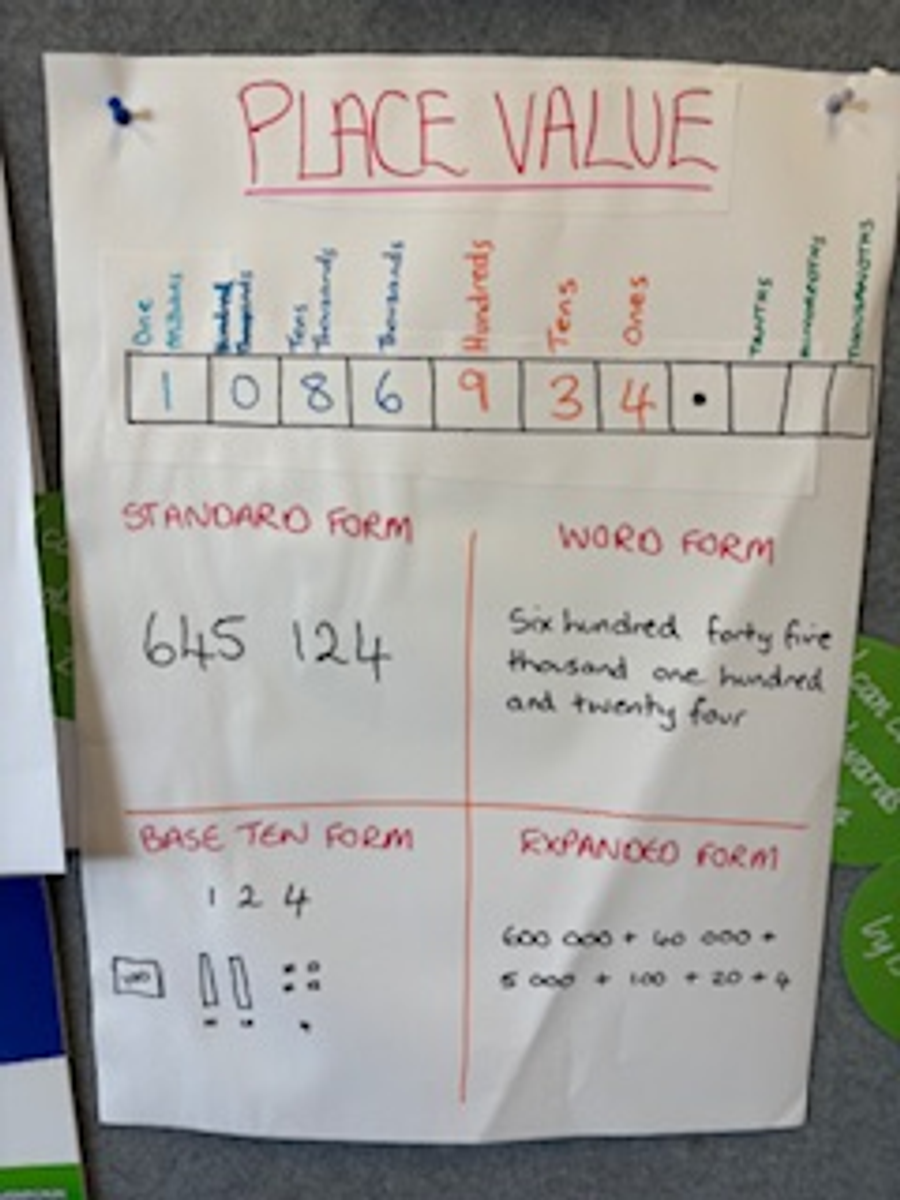 PLACE VALUE
One Hundred Tens Thousands Hundreds Tens Ones TENTHS HUNDREDTHS THOUSANDTHS
Thousands Thousands
1 0 8 6 9 3 4 .
STANDARD FORM
645 124
WORD FORM
Six hundred forty five
thousand one hundred
and twenty four
BASE TEN FORM
1 2 4
100
EXPANDED FORM
600 000 + 40 000 +
5 000 + 100 + 20 + 4
I can
by